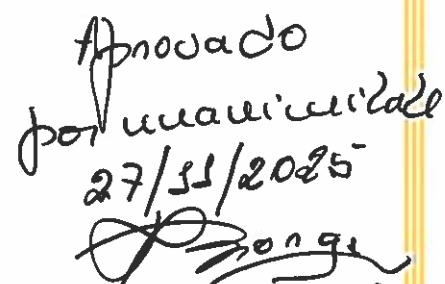 Aprovado
por unanimidade
27/11/2025